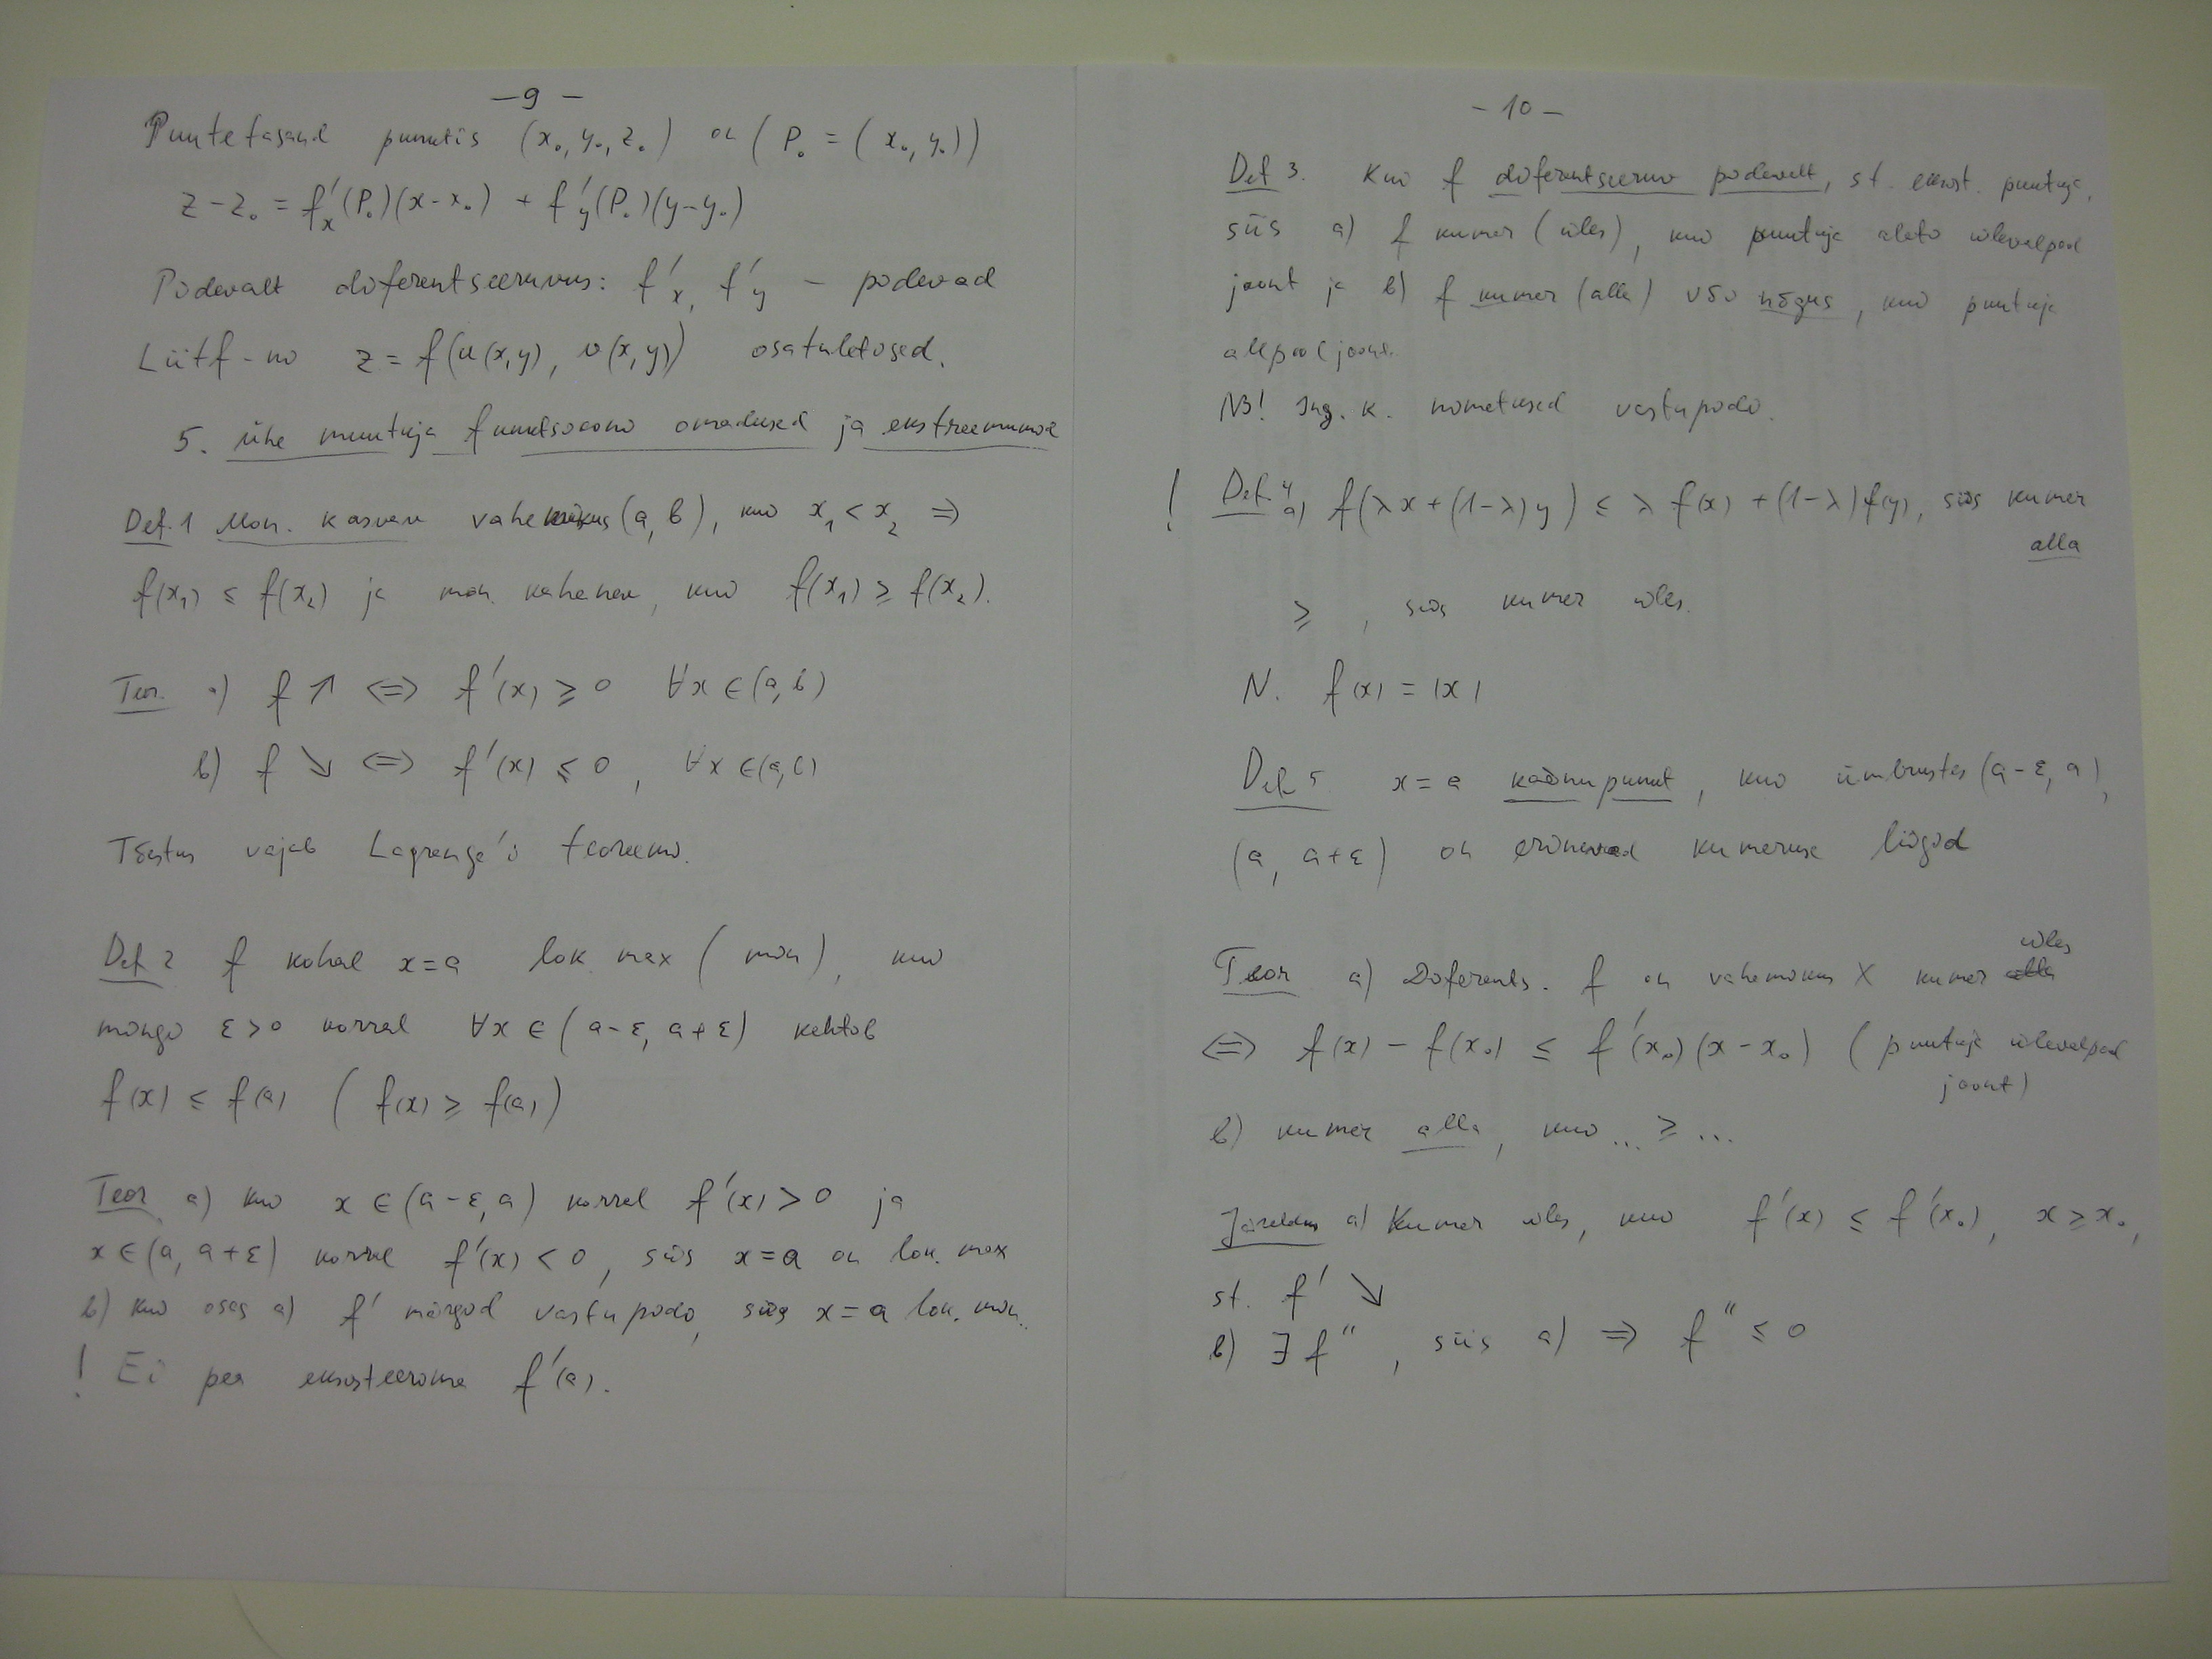 - 9 -
Puutetasand punktis (x₀, y₀, z₀) on (P₀ = (x₀, y₀))
z - z₀ = f'ₓ(P₀)(x - x₀) + f'ᵧ(P₀)(y - y₀)
Pidevalt diferentseeruvus: f'ₓ, f'ᵧ - pidevad
Liitf-ni z = f(u(x,y), v(x,y)) osatuletised.
5. Ühe muutuja funktsiooni omadused ja ekstreemumid
Def. 1 Mon. kasvav vahemikus (a, b), kui x₁ < x₂ ⇒
f(x₁) ≤ f(x₂) ja mon. kahenev, kui f(x₁) ≥ f(x₂).
Teor. a) f ↗ ⇔ f'(x) ≥ 0 ∀x ∈ (a, b)
b) f ↘ ⇔ f'(x) ≤ 0, ∀x ∈ (a, b)
Tõestus vajab Lagrange'i teoreemi.
Def 2 f kohal x = a lok max (min), kui
mingi ε > 0 korral ∀x ∈ (a - ε, a + ε) kehtib
f(x) ≤ f(a) (f(x) ≥ f(a))
Teor a) kui x ∈ (a - ε, a) korral f'(x) > 0 ja
x ∈ (a, a + ε) korral f'(x) < 0, siis x = a on lok. max
b) kui osas a) f' märgid vastupidi, siis x = a lok. min.
! Ei pea eksisteerima f'(a).
- 10 -
Def 3. Kui f diferentseeruv pidevalt, st. eksist. puutuja,
siis a) f kumer (üles), kui puutuja alati ülevalpool
joont ja b) f kumer (alla) või nõgus, kui puutuja
allpool joont.
NB! Ing. k. nimetused vastupidi.
! Def. 4 a) f(λx + (1-λ)y) ≤ λ f(x) + (1-λ) f(y), siis kumer
alla
≥ , siis kumer üles.
N. f(x) = |x|
Def 5 x = a käänupunkt, kui ümbrustes (a - ε, a),
(a, a + ε) on erinevad kumeruse liigid
Teor a) Diferents. f on vahemikus X kumer üles
⇔ f(x) - f(x₀) ≤ f'(x₀)(x - x₀) (puutuja ülevalpool
joont)
b) kumer alla, kui ... ≥ ...
Järeldus a) Kumer üles, kui f'(x) ≤ f'(x₀), x ≥ x₀,
st. f' ↘
b) ∃ f'', siis a) ⇒ f'' ≤ 0